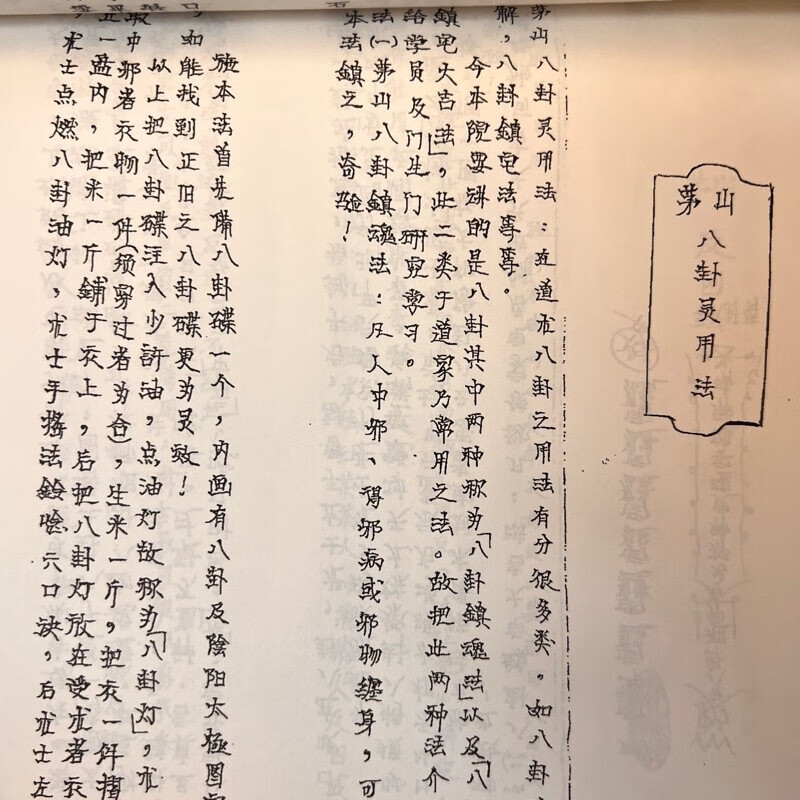 茅山
八卦灵用法
茅山八卦灵用法：在道术八卦之用法有分很多类。如八卦
解，八卦鎮宅法等等。
今本院要讲的是八卦其中两种称为「八卦鎮魂法」以及「八
鎮宅大吉法」，此二类于道家乃常用之法。故把此两种法介
给学员及门生们研究学习。
法㈠茅山八卦鎮魂法：凡人中邪、得邪病或邪物缠身，可
本法鎮之，奇验！
施本法首先備八卦碟一个，内画有八卦及陰阳太極图
如能找到正旧之八卦碟更为灵效！
以上把八卦碟注入少許油，点油灯故称为「八卦灯」，术
中邪者衣物一件(须穿过者为合)，生米一斤，把衣一件摺
一盔内，把米一斤鋪于衣上，后把八卦灯放在受术者衣
术士点燃八卦油灯，术士手搖法鈴唸六口诀，后术士左